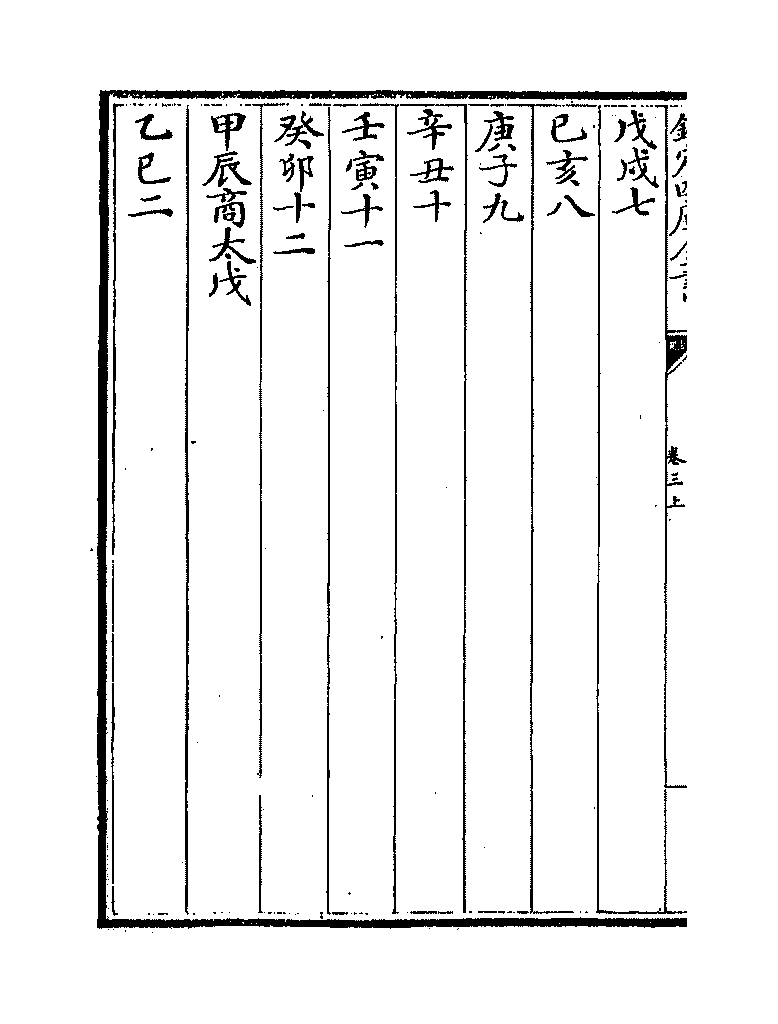 欽定四庫全書
卷三上
戊戌七
已亥八
庚子九
辛丑十
壬寅十一
癸卯十二
甲辰商太戊
乙巳二